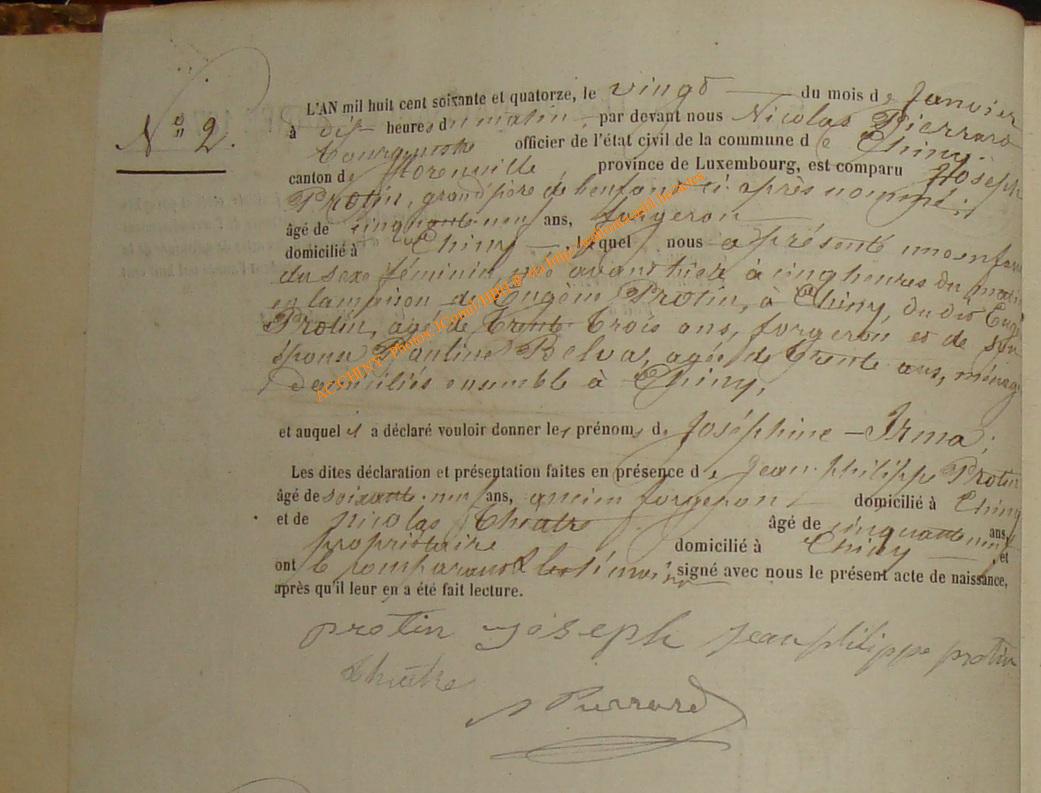 N° 2.
L'AN mil huit cent soixante et quatorze, le vingt du mois de Janvier
à dix heures du matin, par devant nous Nicolas Pierrard
bourgmestre officier de l'état civil de la commune de Chiny,
canton de Florenville, province de Luxembourg, est comparu Joseph
Protin, grand père de l'enfant ci après nommé,
âgé de cinquante neuf ans, forgeron
domicilié à Chiny, lequel nous a présenté une enfant
du sexe féminin, née avant hier à cinq heures du matin
en la maison de Eugène Protin, à Chiny, du dit Eugène
Protin, âgé de trente trois ans, forgeron et de son
épouse Pauline Belva, agée de trente ans, ménag
domiciliés ensemble à Chiny,
et auquel il a déclaré vouloir donner les prénoms de Joséphine - Irma;
Les dites déclaration et présentation faites en présence de Jean philippe Protin
âgé de soixante-neuf ans, ancien forgeron domicilié à Chiny
et de nicolas Théatre âgé de cinquante neuf ans,
propriétaire domicilié à Chiny, et
ont le comparant & les témoins signé avec nous le présent acte de naissance,
après qu'il leur en a été fait lecture.
protin joseph jean philippe protin
théatre
Pierrard
ACCHINY- Photos JComif HHG @ Ma http://enfumerivatif.fr/actes